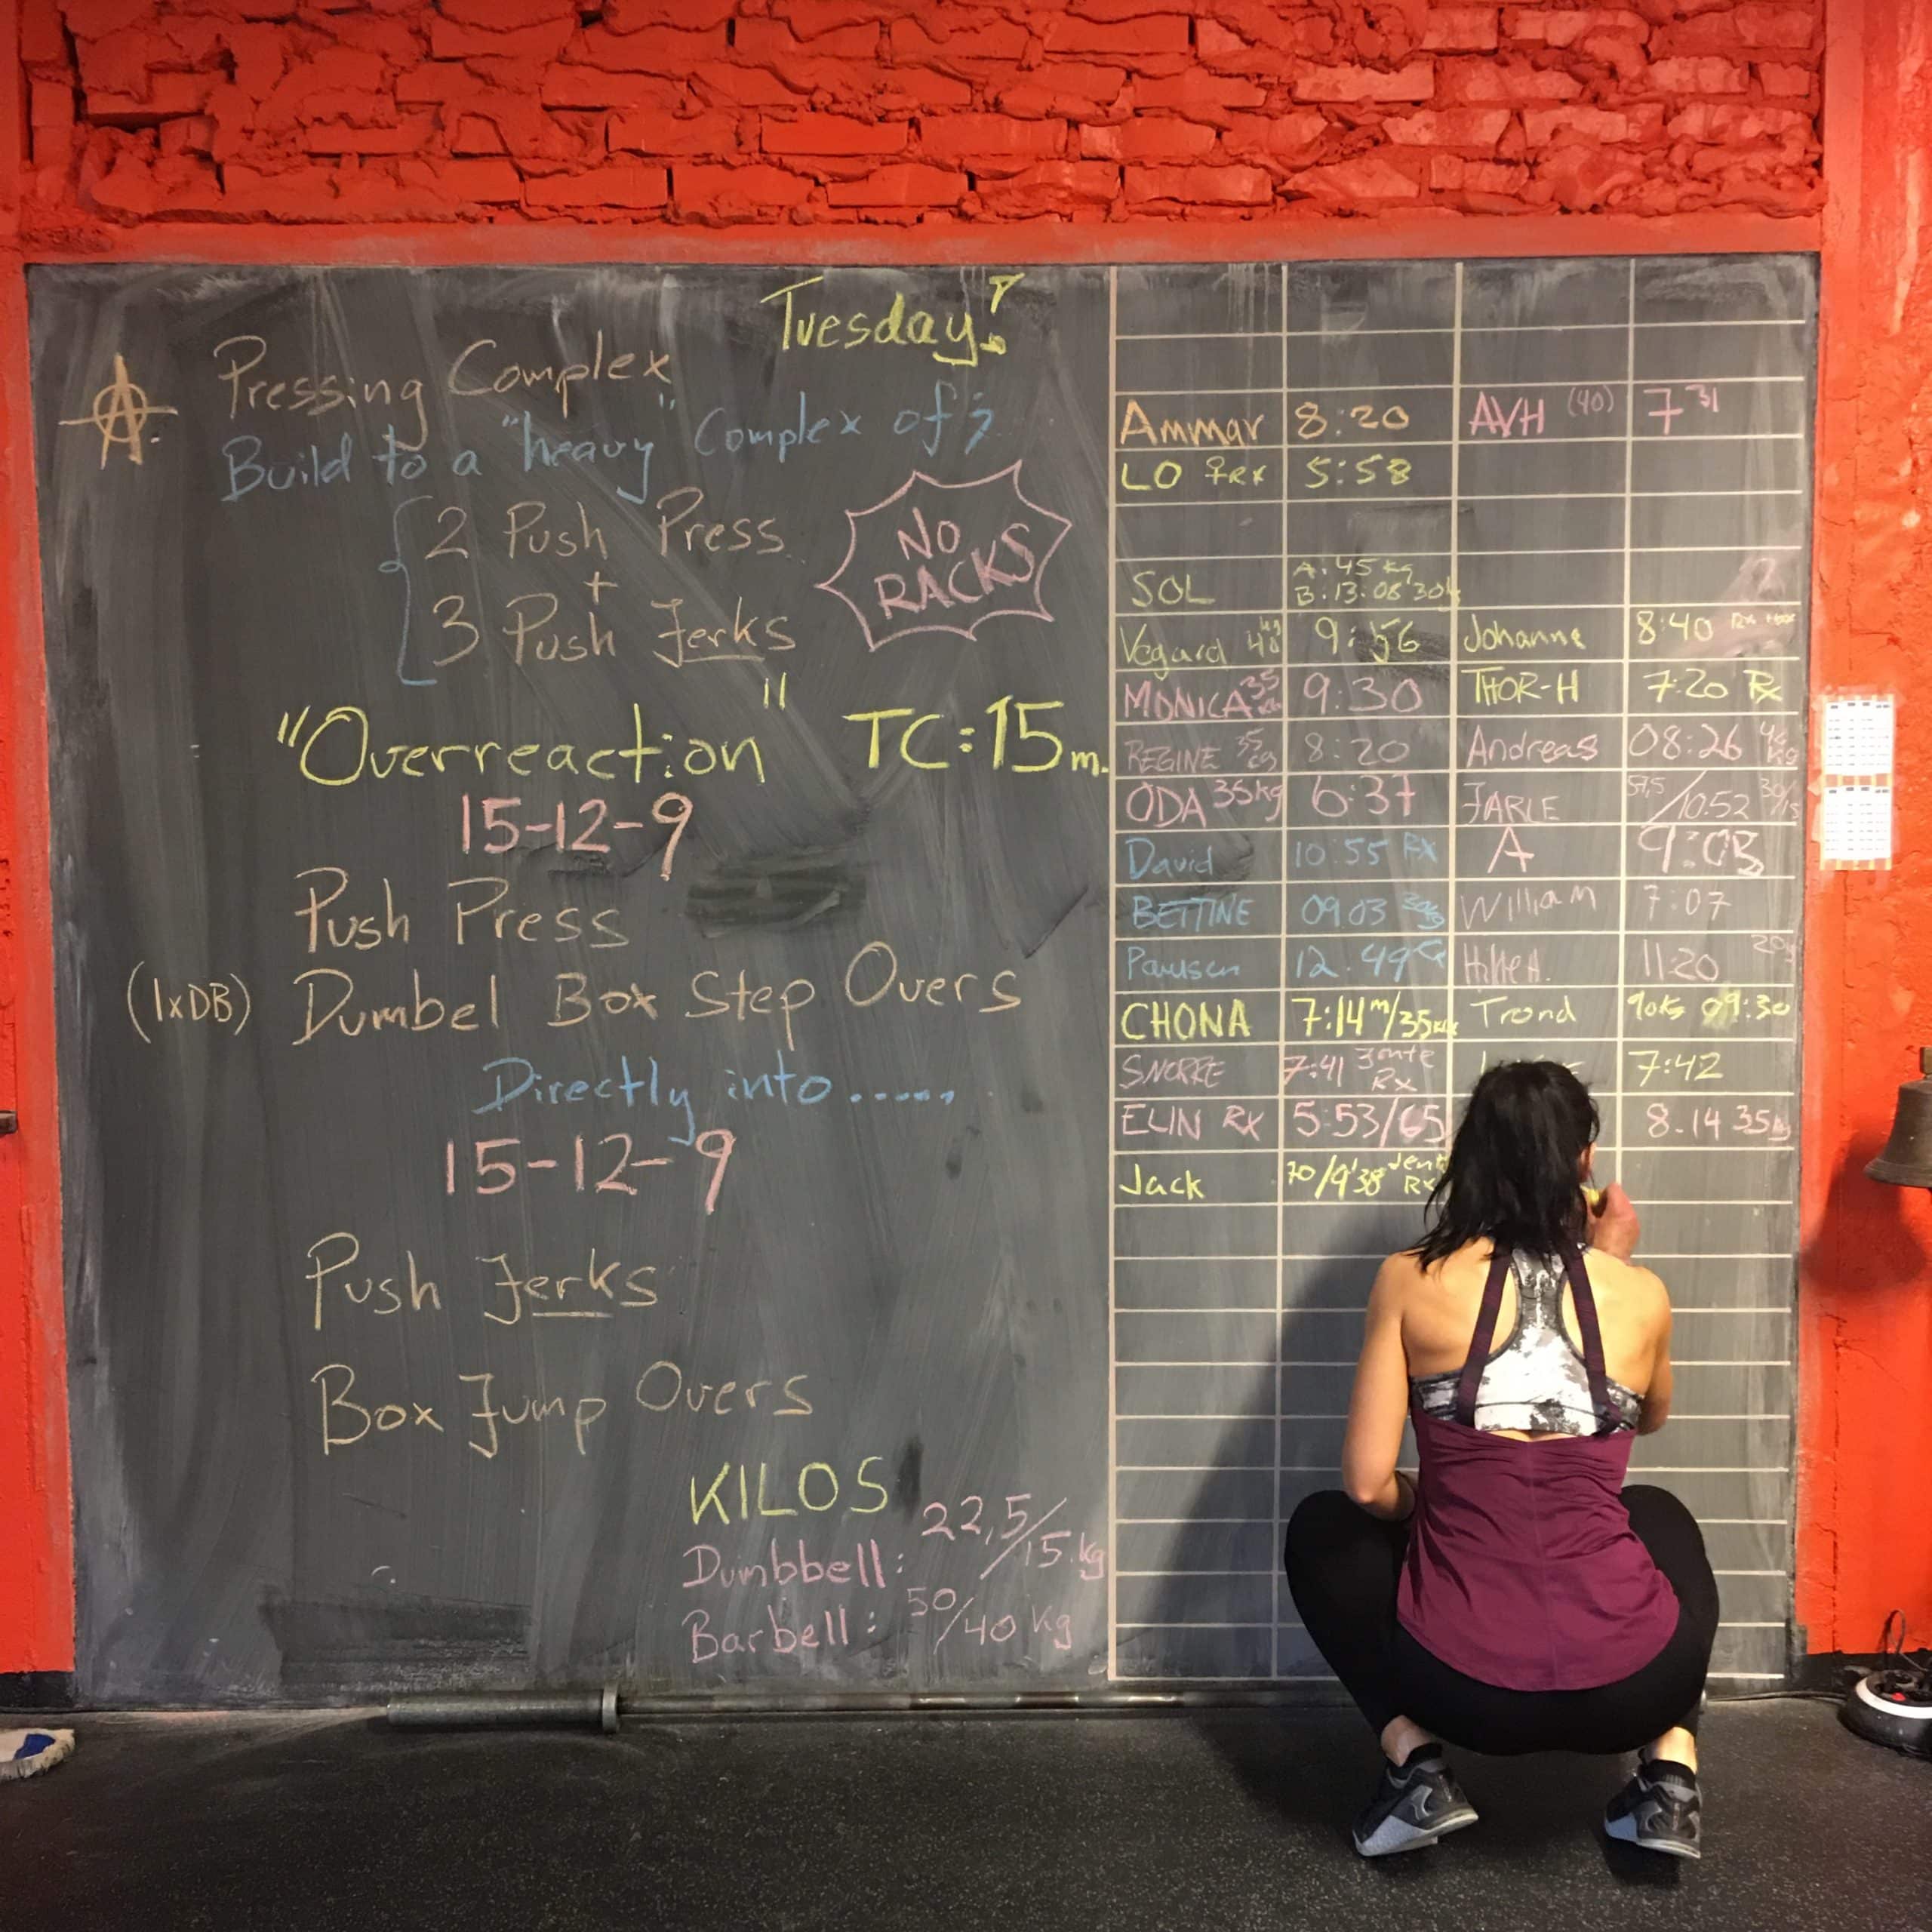 Tuesday!
A. Pressing Complex
Build to a "heavy" Complex of;
2 Push Press
+
3 Push Jerks
NO
RACKS
"Overreaction" TC:15m.
15-12-9
Push Press
(1xDB) Dumbel Box Step Overs
Directly into......
15-12-9
Push Jerks
Box Jump Overs
KILOS
Dumbbell: 22,5/15 kg
Barbell: 50/40 kg
Ammar 8:20 AVH (40) 7 31
LO ♀ RX 5:58
SOL A: 45 kg
B: 13:08 30
Vegard 40 kg 9:56 Johanne 8:40 Rx
MONICA 35 9:30 THOR-H 7:20 Rx
REGINE 35 kg 8:20 Andreas 08:26 kg
ODA 35kg 6:37 JARLE 10.52
David 10:55 RX A 9:03
BETTINE 09 03 William 7:07
Paulsen 12.49 11:20
CHONA 7:14 m/35 Trond 90kg 09:30
SNORRE 7:41 Rx 7:42
ELIN RX 5:53/65 8.14 35kg
Jack 70/9'38 Rx